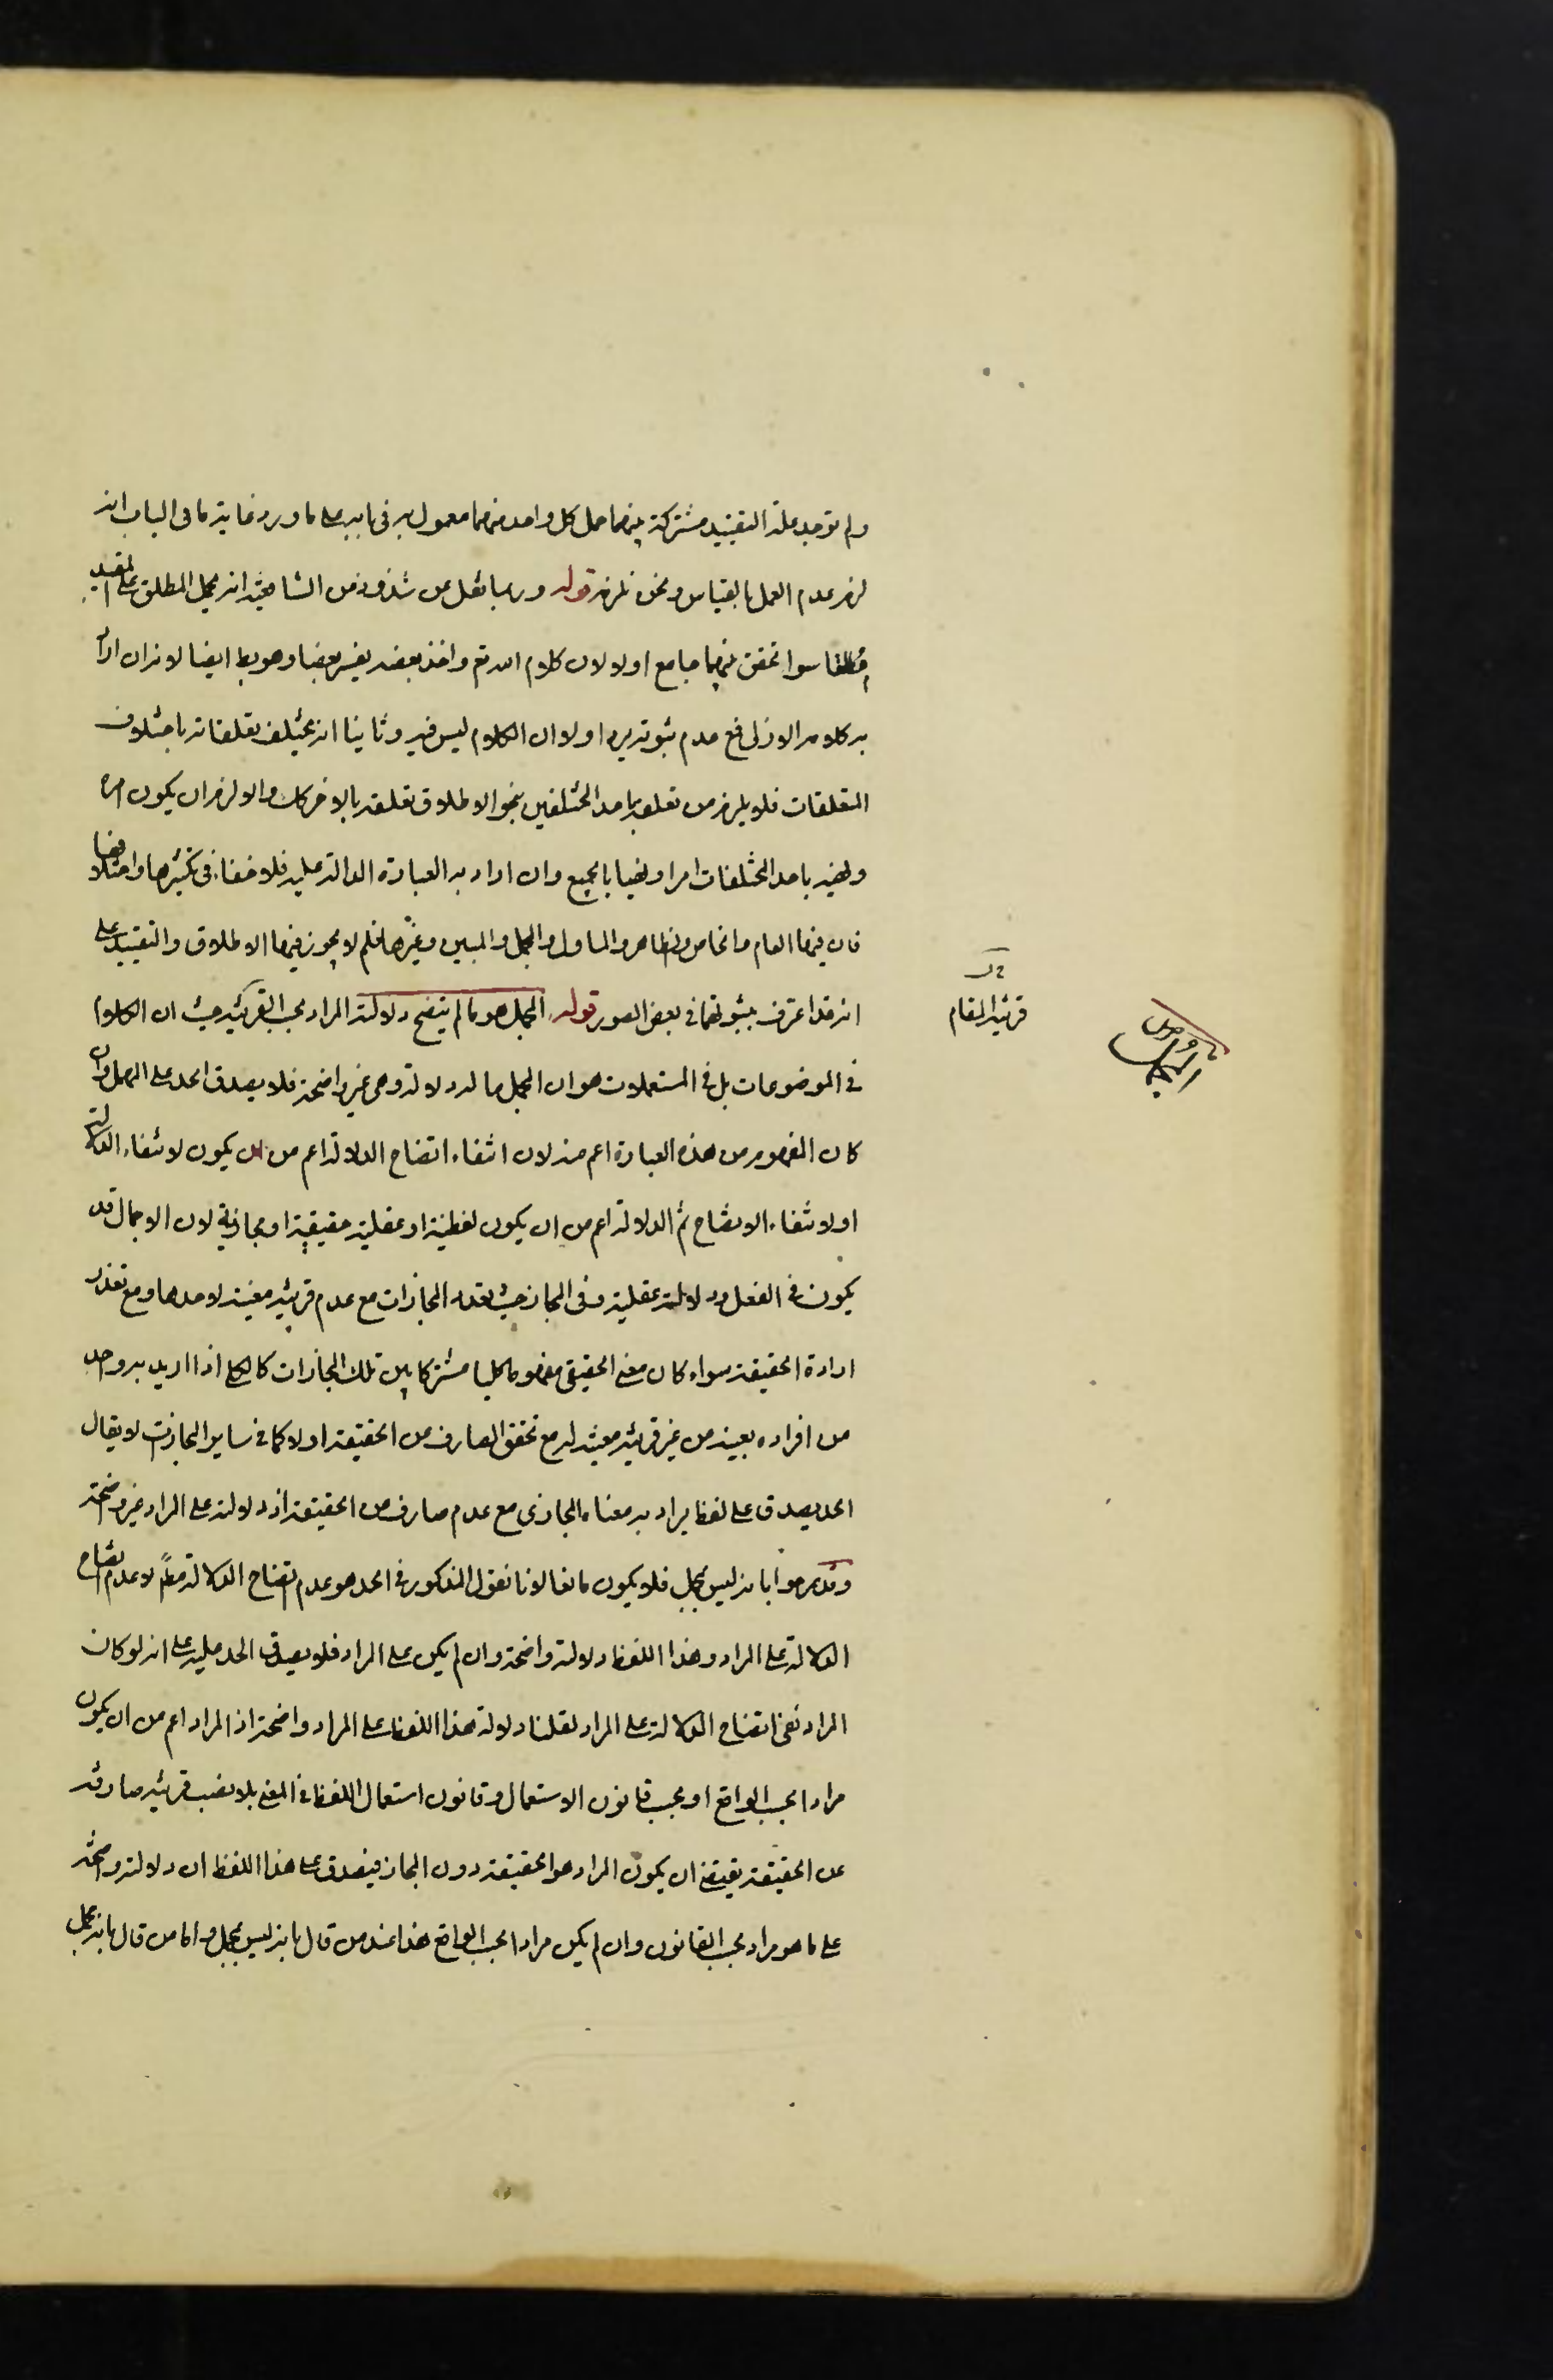 ولم توجد علة التقييد مشتركة بينهما حمل كل واحد منهما معمول به فى بابه على ما ورد غاية ما فى الباب انه
لزم عدم العمل بالقياس ونحن نلزمه قوله وربما نقل عن شذوذ من الشافعية انه يحمل المطلق على المقيد
مطلقا سوا تحقق بينهما جامع اولا لان كلام الله تع واحد بعضه يفسر بعضا وهو بط ايضا لانه ان اراد
به كلامه الازلى فمع عدم ثبوته يرد اولا ان الكلام ليس فيه وثانيا انه يختلف تعلقاته باختلاف
المتعلقات فلا يلزم من تعلقه باحد المختلفين بنحو الاطلاق تعلقه بالاخر كك والا لزم ان يكون امره
ونهيه باحد المختلفات امرا ونهيا بالجميع وان اراد به العبارة الدالة عليه فلا خفاء فى تكثيرها واختلافها
فان فيها العام والخاص والظاهر والماول والمجمل والمبين وغيرها فلم لا يجوز فيها الاطلاق والتقييد على
انه قد اعترف بثبوتهما فى بعض الصور قوله المجمل هو ما لم يتضح دلالته المراد بحسب القرينة حيث ان الكلام
فى الموضوعات بل فى المستعملات هو ان المجمل ما له دلالة وهى غير واضحة فلا يصدق الحد على المهمل وان
كان المفهوم من هذه العبارة اعم منه لان انتفاء اتضاح الدلالة اعم من ان يكون لانتفاء الدلالة
او لانتفاء الاتضاح ثم الدلالة اعم من ان يكون لفظية او عقلية حقيقية او مجازية لان الاجمال قد
يكون فى الفعل ودلالته عقلية وفى المجاز حيث تعدد المجازات مع عدم قرينة معينة لاحدها ومع تعذر
ارادة الحقيقة سواء كان معنى الحقيقى مفهوما كليا مشتركا بين تلك المجازات كالكلى اذا اريد به واحد
من افراده بعينه من غير قرينة معينة له مع تحقق الصارف من الحقيقة اولا كما فى ساير المجازات لا يقال
الحد يصدق على لفظ يراد به معناه المجازى مع عدم صارف من الحقيقة اذ دلالته على المراد غير واضحة
وقد صرحوا بانه ليس بمجمل فلا يكون مانعا لانا نقول المذكور فى الحد هو عدم اتضاح الدلالة مط لا عدم اتضاح
الدلالة على المراد وهذا اللفظ دلالته واضحة وان لم يكن على المراد فلا يصدق الحد عليه على انه لو كان
المراد نفى اتضاح الدلالة على المراد لقلنا دلالة هذا اللفظ على المراد واضحة اذ المراد اعم من ان يكون
مرادا بحسب الواقع او بحسب قانون الاستعمال وقانون استعمال اللفظ فى المعنى بلا نصب قرينة صارفة
عن الحقيقة يقتضى ان يكون المراد هو الحقيقة دون المجاز فيصدق على هذا اللفظ ان دلالته واضحة
على ما هو مراد بحسب القانون وان لم يكن مرادا بحسب الواقع هذا عند من قال بانه ليس بمجمل واما من قال بانه مجمل
قرينة المقام